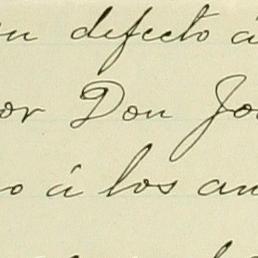 un defecto á
or Don Jo
o á los an